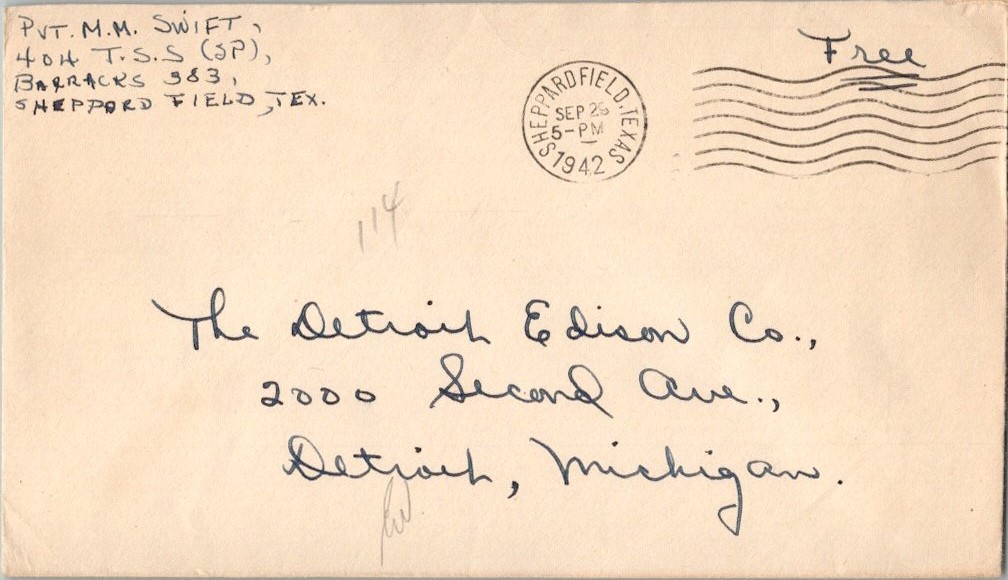 PVT. M.M. SWIFT,
404 T.S.S (SP),
BARRACKS 383,
SHEPPARD FIELD, TEX.
Free
SHEPPARD FIELD, TEXAS
SEP
5-PM
1942
114
The Detroit Edison Co.,
2000 Second Ave.,
Detroit, Michigan.